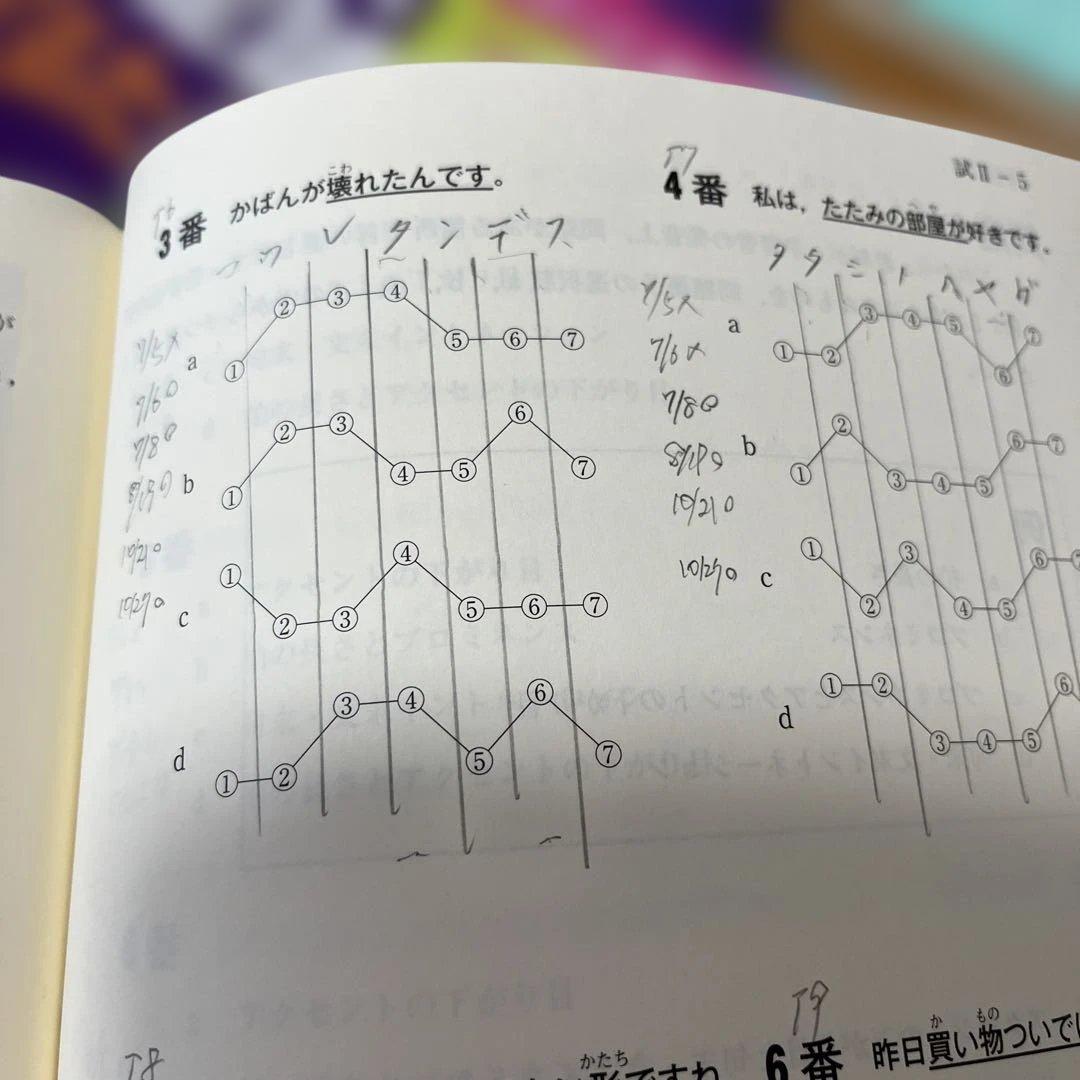 試Ⅱ－5
3番 かばんが壊れたんです。
こわ
コ ワ レ タ ン デ ス
7/5 ×
7/6 ○
7/8 ○
10/21 ○
10/27 ○
a ① ② ③ ④ ⑤ ⑥ ⑦
b ① ② ③ ④ ⑤ ⑥ ⑦
c ① ② ③ ④ ⑤ ⑥ ⑦
d ① ② ③ ④ ⑤ ⑥ ⑦
4番 私は，たたみの部屋が好きです。
7/5 ×
7/6 ×
7/8 ○
10/21 ○
10/27 ○
a ① ② ③ ④ ⑤ ⑥ ⑦
b ① ② ③ ④ ⑤ ⑥ ⑦
c ① ② ③ ④ ⑤ ⑥ ⑦
d ① ② ③ ④ ⑤ ⑥
T8
かたち
形ですね
T9
6番 昨日買い物ついでに
か もの